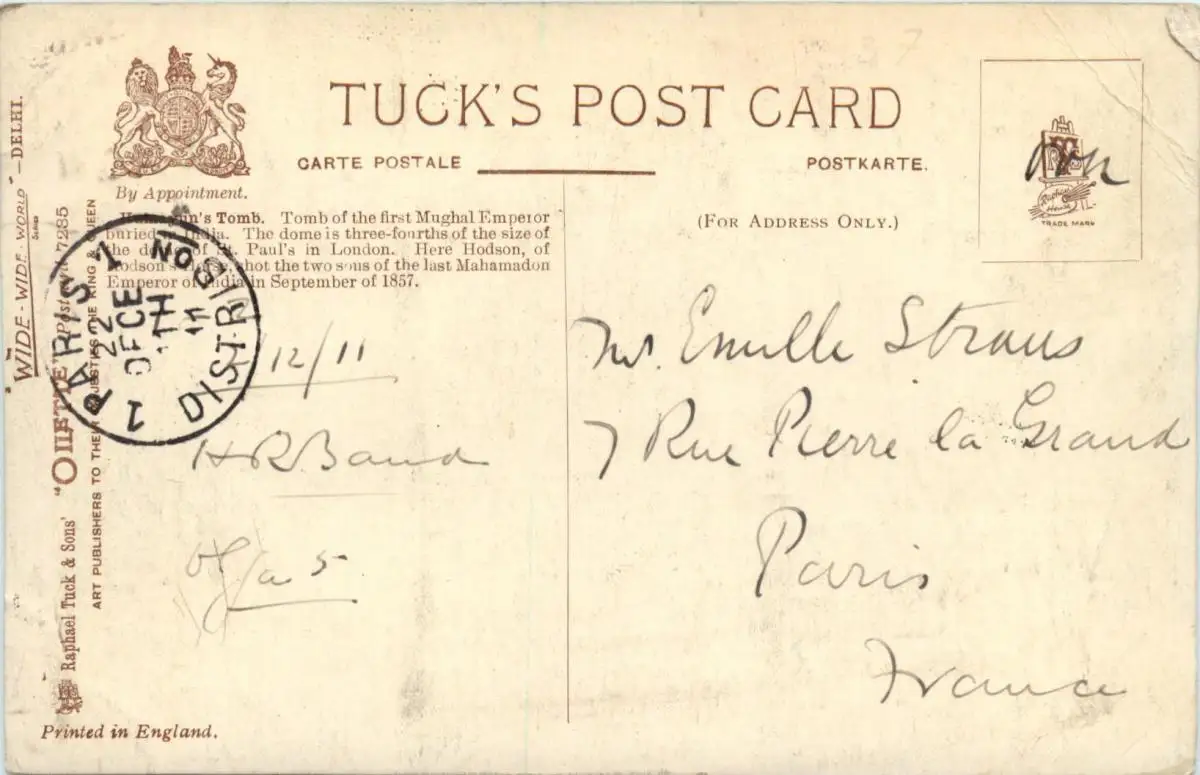 TUCK'S POST CARD
CARTE POSTALE
POSTKARTE.
By Appointment.
(FOR ADDRESS ONLY.)
Tomb. Tomb of the first Mughal Emperor
buried in India. The dome is three-fourths of the size of
the dome of St. Paul's in London. Here Hodson, of
Hodson's Horse, shot the two sons of the last Mahamadon
Emperor of India in September of 1857.
TRADE MARK
WIDE-WIDE-WORLD
Series
—DELHI.
Raphael Tuck & Sons' "OILETTE" Postcard 7285
ART PUBLISHERS TO THEIR MAJESTIES THE KING & QUEEN
PARIS 1
DISTRIBUTION
22
DECE
11
12/11
H R Baud
Mr. Emille Straus
7 Rue Pierre la Grand
Paris
France
Printed in England.